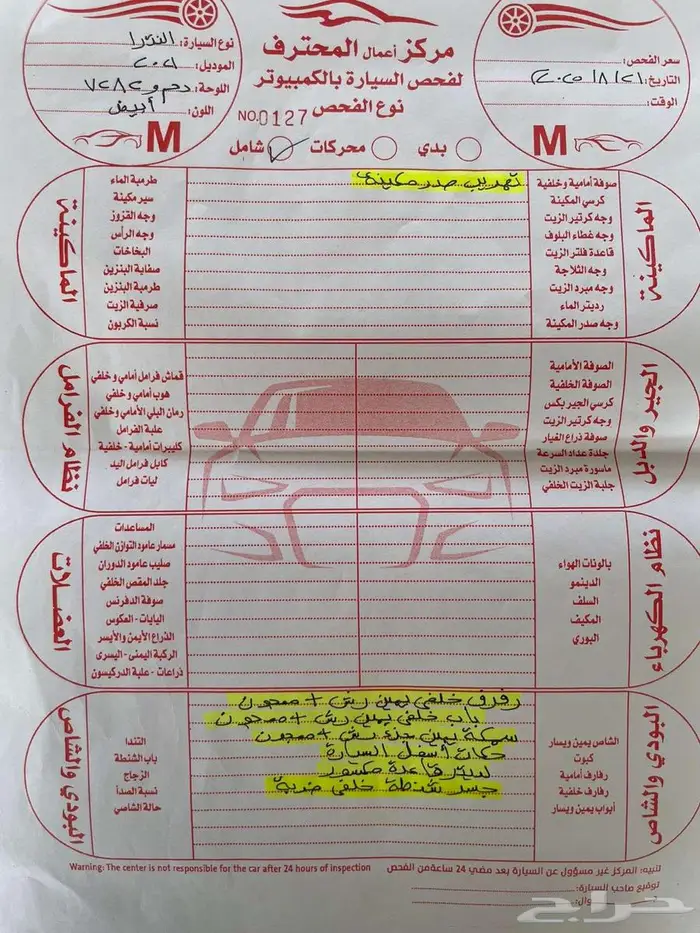 مركز أعمال المحترف
لفحص السيارة بالكمبيوتر
نوع الفحص
NO.0127
بدي
محركات
شامل
سعر الفحص:
التاريخ: ٢٠٢٥/٨/٢١
الوقت:
M
نوع السيارة: النترا
الموديل: ٢٠٢١
اللوحة: ٧٢٨٢
اللون: أبيض
M
الماكينة
صوفة أمامية وخلفية
كرسي المكينة
وجه كرتير الزيت
وجه غطاء البلوف
قاعدة فلتر الزيت
وجه الثلاجة
وجه مبرد الزيت
رديتر الماء
وجه صدر المكينة
تهريب صدر مكينة
طرمبة الماء
سير مكينة
وجه القزوز
وجه الرأس
البخاخات
صفاية البنزين
طرمبة البنزين
صرفية الزيت
نسبة الكربون
الماكينة
الجير والدبل
الصوفة الأمامية
الصوفة الخلفية
كرسي الجير بكس
وجه كرتير الزيت
صوفة ذراع الغيار
جلدة عداد السرعة
ماسورة مبرد الزيت
جلبة الزيت الخلفي
قماش فرامل أمامي وخلفي
هوب أمامي وخلفي
رمان البلي الأمامي وخلفي
علبة الفرامل
كليبرات أمامية - خلفية
كابل فرامل اليد
ليات فرامل
نظام الفرامل
نظام الكهرباء
بالونات الهواء
الدينمو
السلف
المكيف
البوري
المساعدات
مسمار عامود التوازن الخلفي
صليب عامود الدوران
جلد المقص الخلفي
صوفة الدفرنس
اليايات - العكوس
الذراع الأيمن والأيسر
الركبة اليمنى - اليسرى
ذراعات - علبة الدركيسون
العضلات
البودي والشاص
الشاص يمين ويسار
كبوت
رفارف أمامية
رفارف خلفية
أبواب يمين ويسار
رفرف خلفي يمين رش + معجون
باب خلفي يمين رش + معجون
سمكة يمين جزء رش + معجون
حكات أسفل السيارة
قاعدة مكسور
جسر شنطة خلفي ضربة
التندا
باب الشنطة
الزجاج
نسبة الصدأ
حالة الشاصي
البودي والشاص
Warning: The center is not responsible for the car after 24 hours of inspection
تنبيه: المركز غير مسؤول عن السيارة بعد مضي 24 ساعة من الفحص
توقيع صاحب السيارة:
حراج